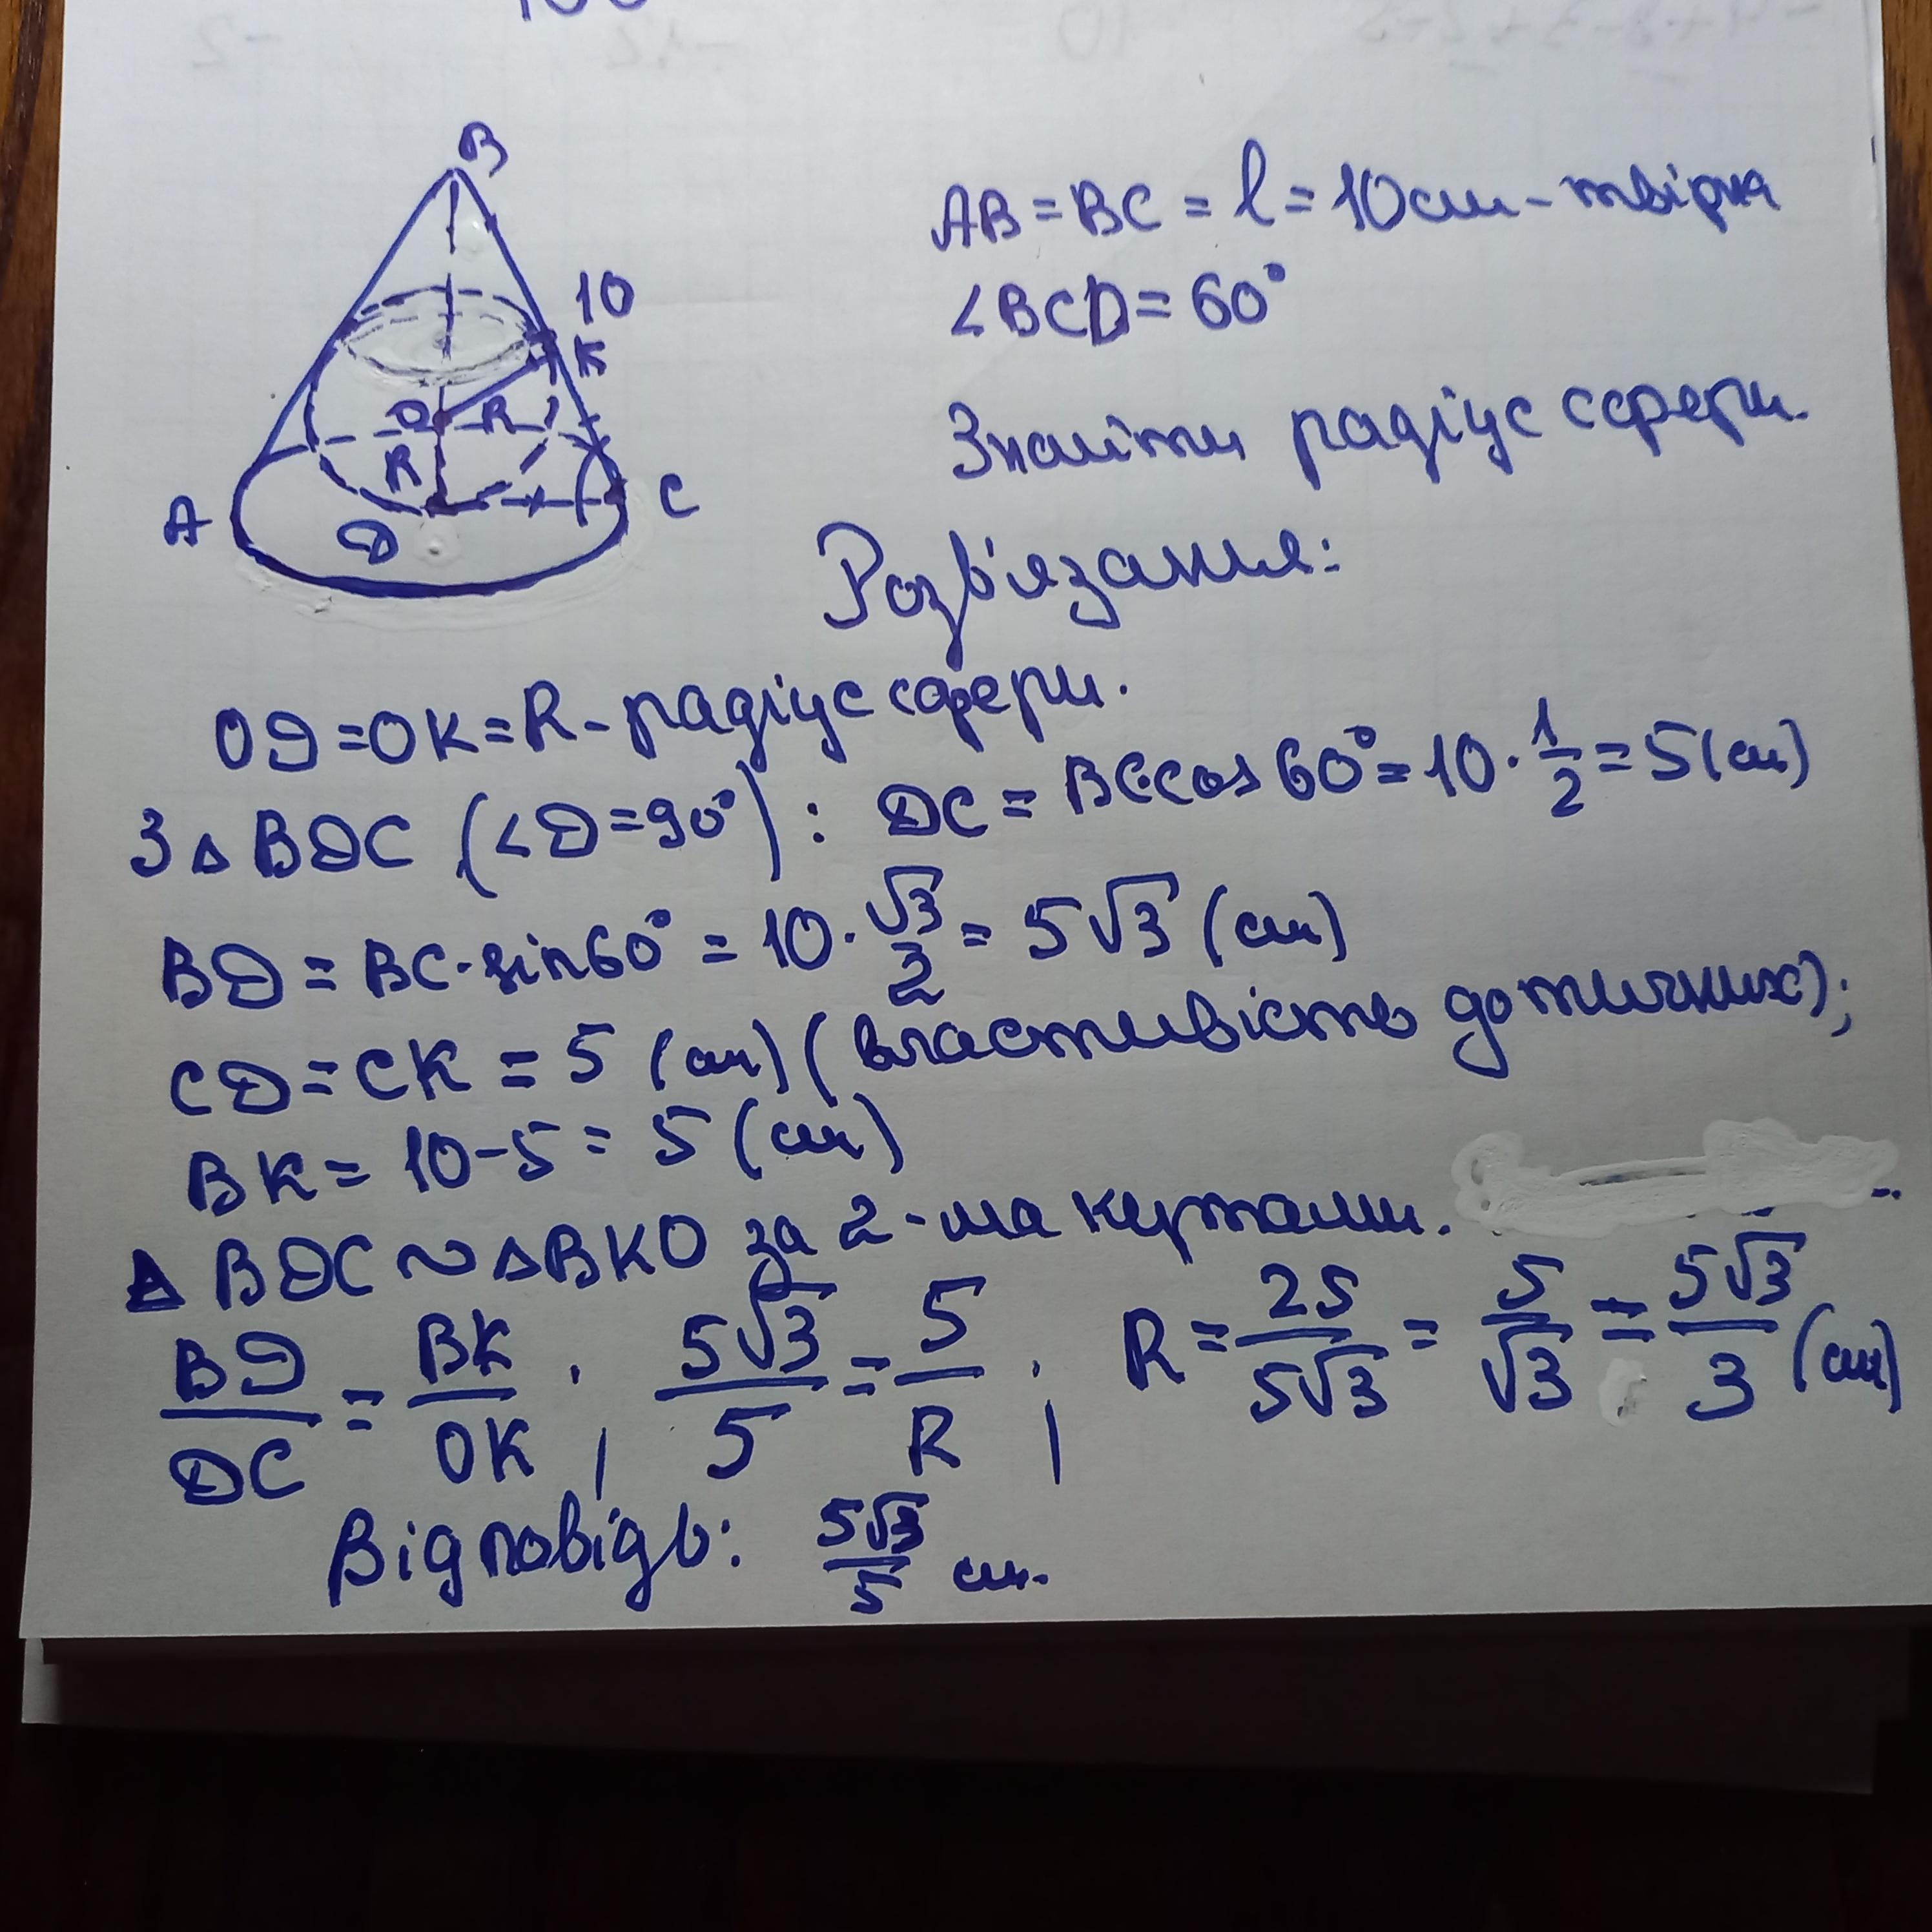 B
10
K
O R
R
A
D
C
AB = BC = l = 10 см - твірна
∠BCD = 60°
Знайти радіус сфери.
Розв'язання:
OD = OK = R - радіус сфери.
З △ BDC (∠D = 90°) : DC = BC·cos 60° = 10 · 1/2 = 5 (см)
BD = BC · sin60° = 10 · √3/2 = 5√3 (см)
CD = CK = 5 (см) (властивість дотичних);
BK = 10 - 5 = 5 (см)
△ BDC ~ △BKO за 2-ма кутами.
BD/DC = BK/OK ; 5√3/5 = 5/R ; R = 25/5√3 = 5/√3 = 5√3/3 (см)
Відповідь: 5√3/5 см.